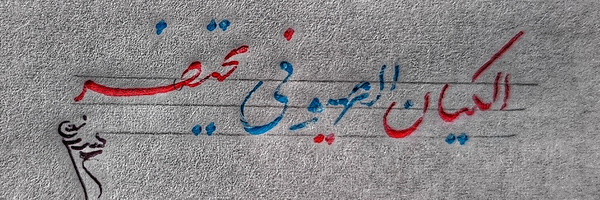 الكيان الصهيوني يحتضر